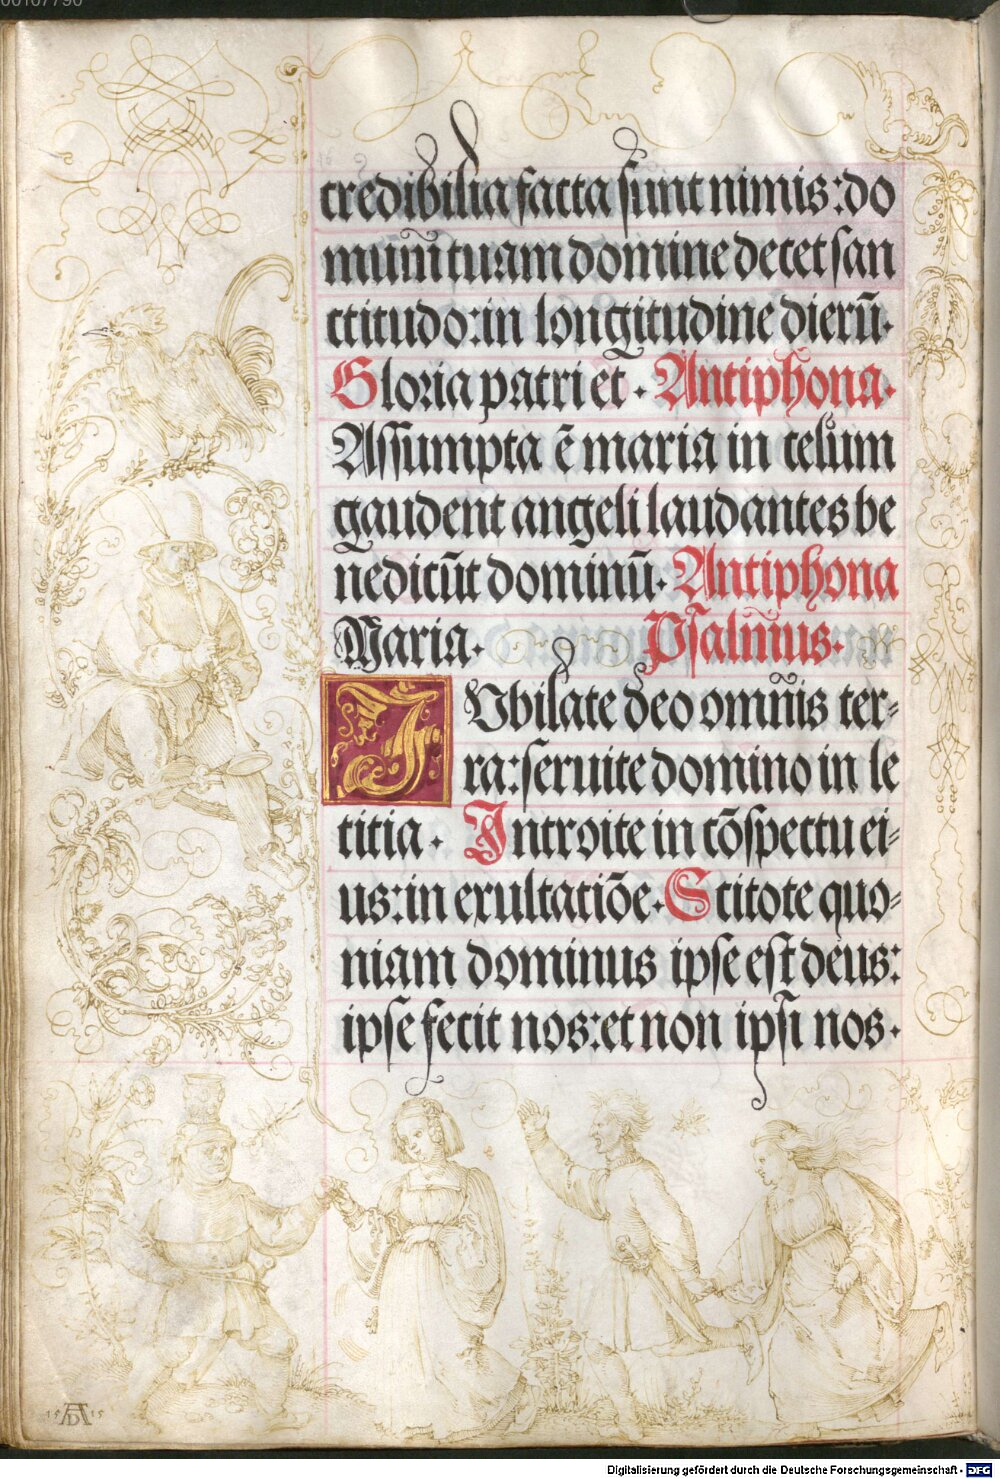 00107790
credibilia facta sunt nimis: do
mum̄ tuam domine decet san
ctitudo: in longitudine dierū.
Gloria patri et. Antiphona.
Assumpta ē maria in celum
gaudent angeli laudantes be
nedicūt dominū. Antiphona
Maria. Psalmus.
IVbilate deo omnis ter-
ra: seruite domino in le
titia. Introite in cōspectu ei-
us: in exultatiōe. Scitote quo-
niam dominus ipse est deus:
ipse fecit nos: et non ipsi nos.
15 AD 15
Digitalisierung gefördert durch die Deutsche Forschungsgemeinschaft - DFG